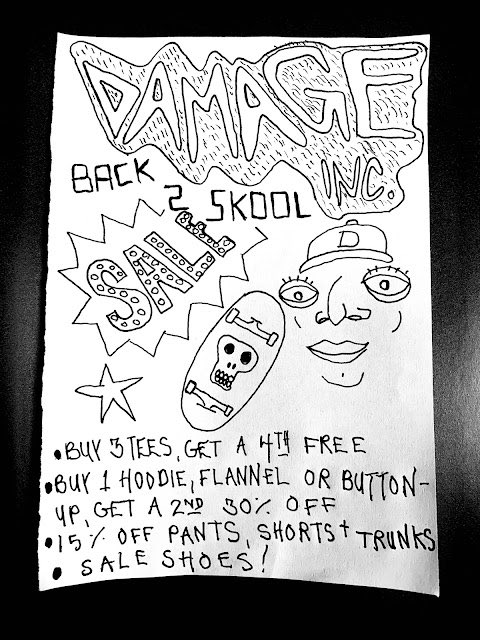 DAMAGE
INC.
BACK
2 SKOOL
SALE
D
• BUY 3 TEES, GET A 4TH FREE
• BUY 1 HOODIE, FLANNEL OR BUTTON-
UP, GET A 2ND 30% OFF
• 15% OFF PANTS, SHORTS + TRUNKS
• SALE SHOES!